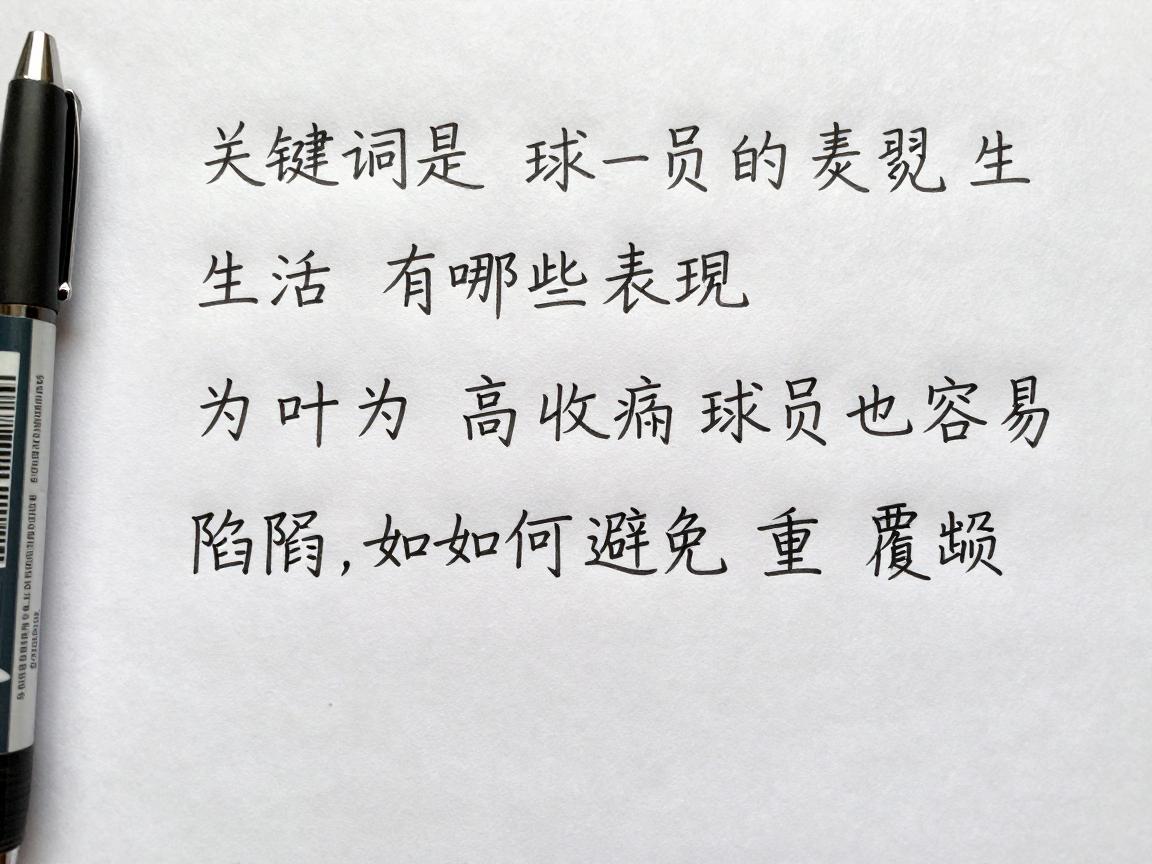 关键词是 球一员的 生
生活 有哪些表現
为叶为 高收痛球员也容易
陷,如如何避免 重 覆